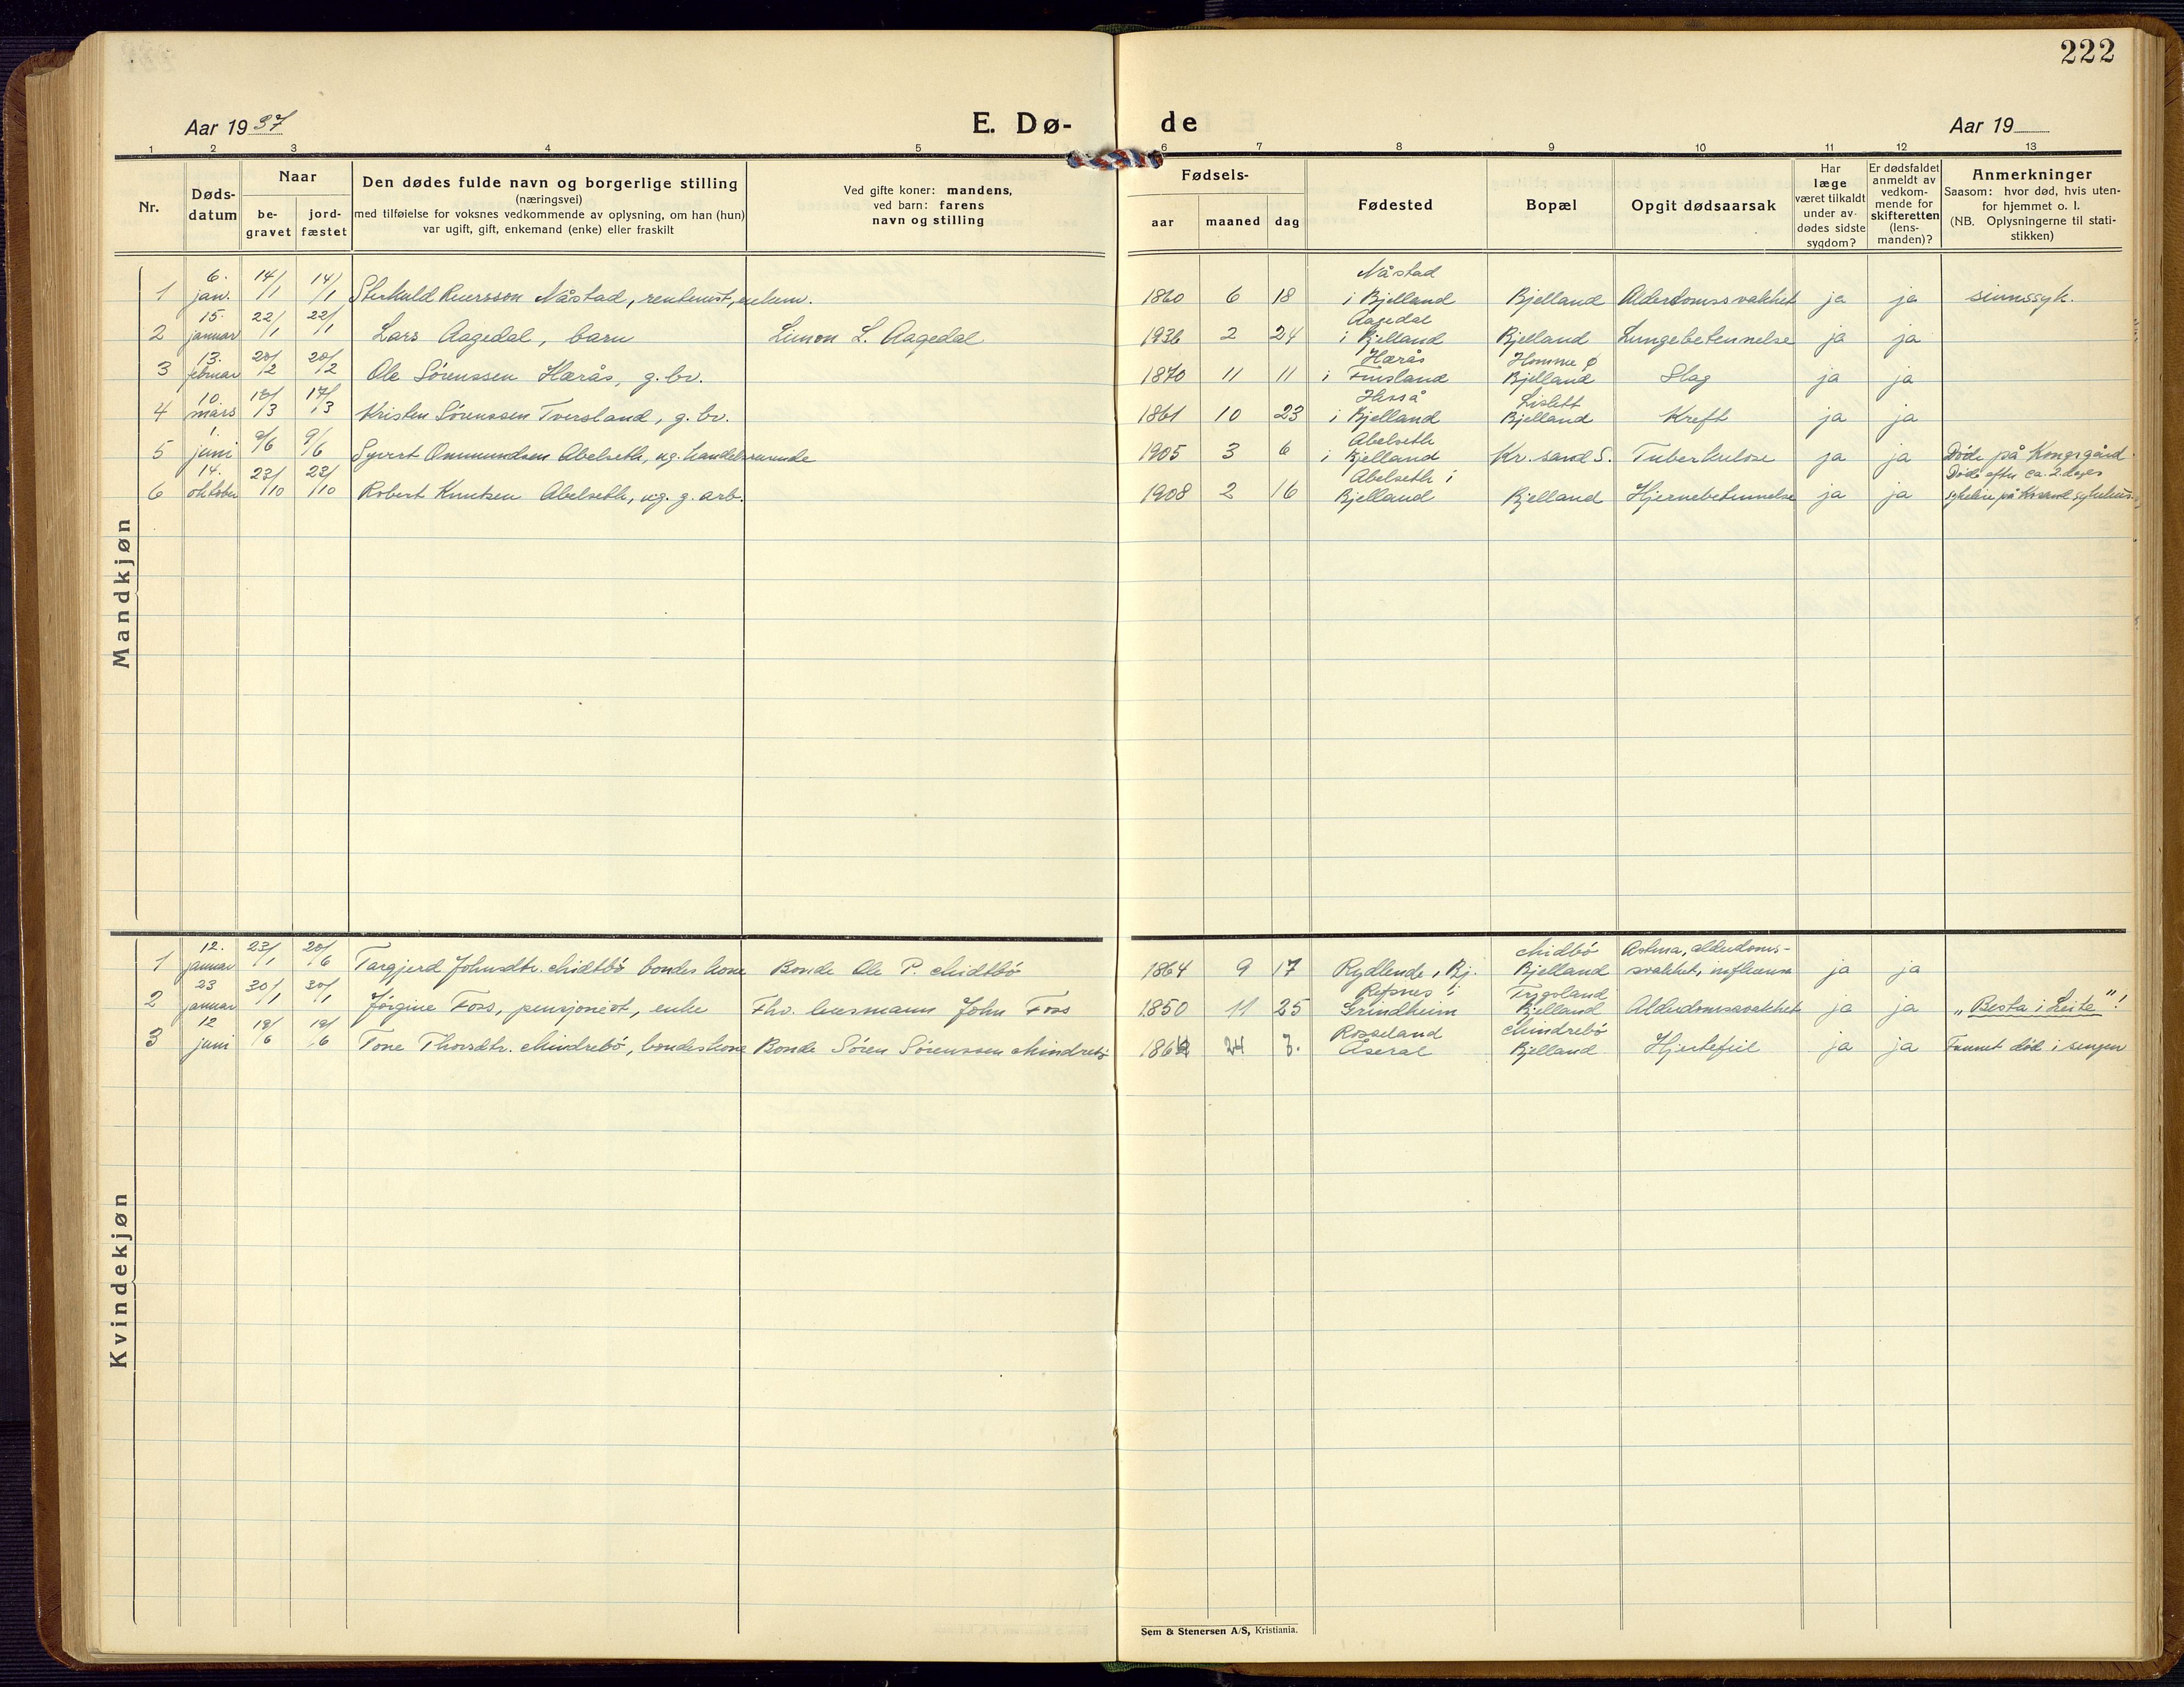 222
Aar 1937
E. Dø-
de
Aar 19
1 2 3 4 5 6 7 8 9 10 11 12 13
Nr.
Døds-
datum
Naar
be-
gravet
jord-
fæstet
Den dødes fulde navn og borgerlige stilling
(næringsvei)
med tilføielse for voksnes vedkommende av oplysning, om han (hun)
var ugift, gift, enkemand (enke) eller fraskilt
Ved gifte koner: mandens,
ved barn: farens
navn og stilling
Fødsels-
aar maaned dag
Fødested
Bopæl
Opgit dødsaarsak
Har
læge
været tilkaldt
under av-
dødes sidste
sygdom?
Er dødsfaldet
anmeldt av
vedkom-
mende for
skifteretten
(lens-
manden)?
Anmerkninger
Saasom: hvor død, hvis uten-
for hjemmet o. l.
(NB. Oplysningerne til stati-
stikken)
Mandkjøn
1 6. jan. 14/1 14/1 Reiersson Nåstad, enkem. 1860 6 18 Nåstad i Bjelland Bjelland Alderdomssvakhet ja ja sinnssyk.
2 15. januar 22/1 22/1 Lars Aagedal, barn Simon L. Aagedal 1936 2 24 Aagedal i Bjelland Bjelland Lungebetennelse ja ja
3 13. februar 20/2 20/2 Ole Sørenssen Hærås, g. br. 1870 11 11 Hærås i Finsland Homme Bjelland Slag ja ja
4 10. mars 17/3 Kristen Sørenssen Tversland, g. br. 1861 10 23 i Bjelland Bjelland Kreft ja ja
5 1. juni 9/6 9/6 Syvert Ommundsen Abelseth, ug. handelsreisende 1905 3 6 Abelseth i Bjelland Kr.sand S. Tuberkulose ja ja Døde på Kongsgård.
6 14. oktober 23/10 23/10 Robert Knutsen Abelseth, ug. g. arb. 1908 2 16 Abelseth i Bjelland Bjelland Hjernebetennelse ja ja Døde efter ca. 2 dages sykeleie på Kr.sand sykehus.
Kvindekjøn
1 12. januar 23/1 20/6 Targjerd Johnsdtr. Midtbø bondeskone Bonde Ole P. Midtbø 1864 9 17 Rydlende, Bj. Midbø Bjelland Astma, alderdoms-svakhet, influensa ja ja
2 23 januar 30/1 30/1 Jørgine Foss, pensjonist, enke Fhv. lensmann John Foss 1850 11 25 Refsnes i Grindheim Trygsland Bjelland Alderdomssvakhet ja ja „Besta i Leite"!
3 12 juni 19/6 19/6 Tone Thorsdtr. Mindrebø, bondeskone Bonde Søren Sørenssen Mindrebø 7. Rosseland Åseral Mindrebø Bjelland Hjertefeil ja ja Funnet død i sengen
Sem & Stenersen A/S, Kristiania.